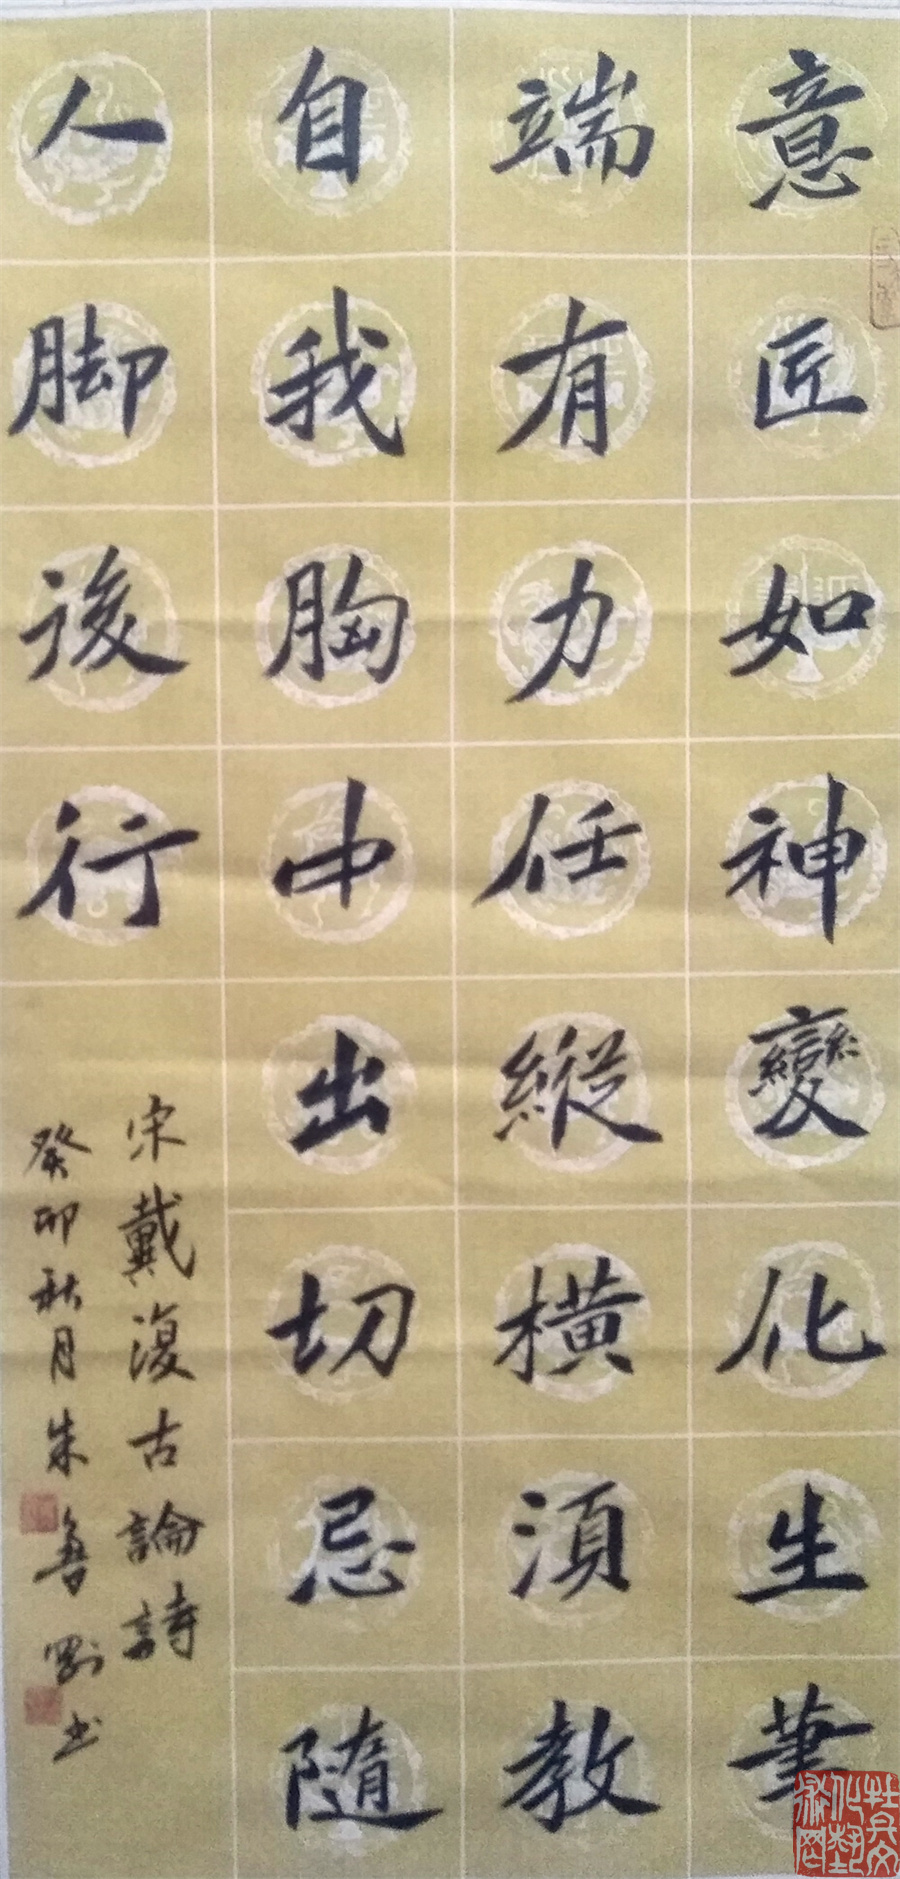 意匠如神變化生筆
端有力任縱橫須教
自我胸中出切忌隨
人脚後行
宋戴復古論詩
癸卯秋月朱魯剛书